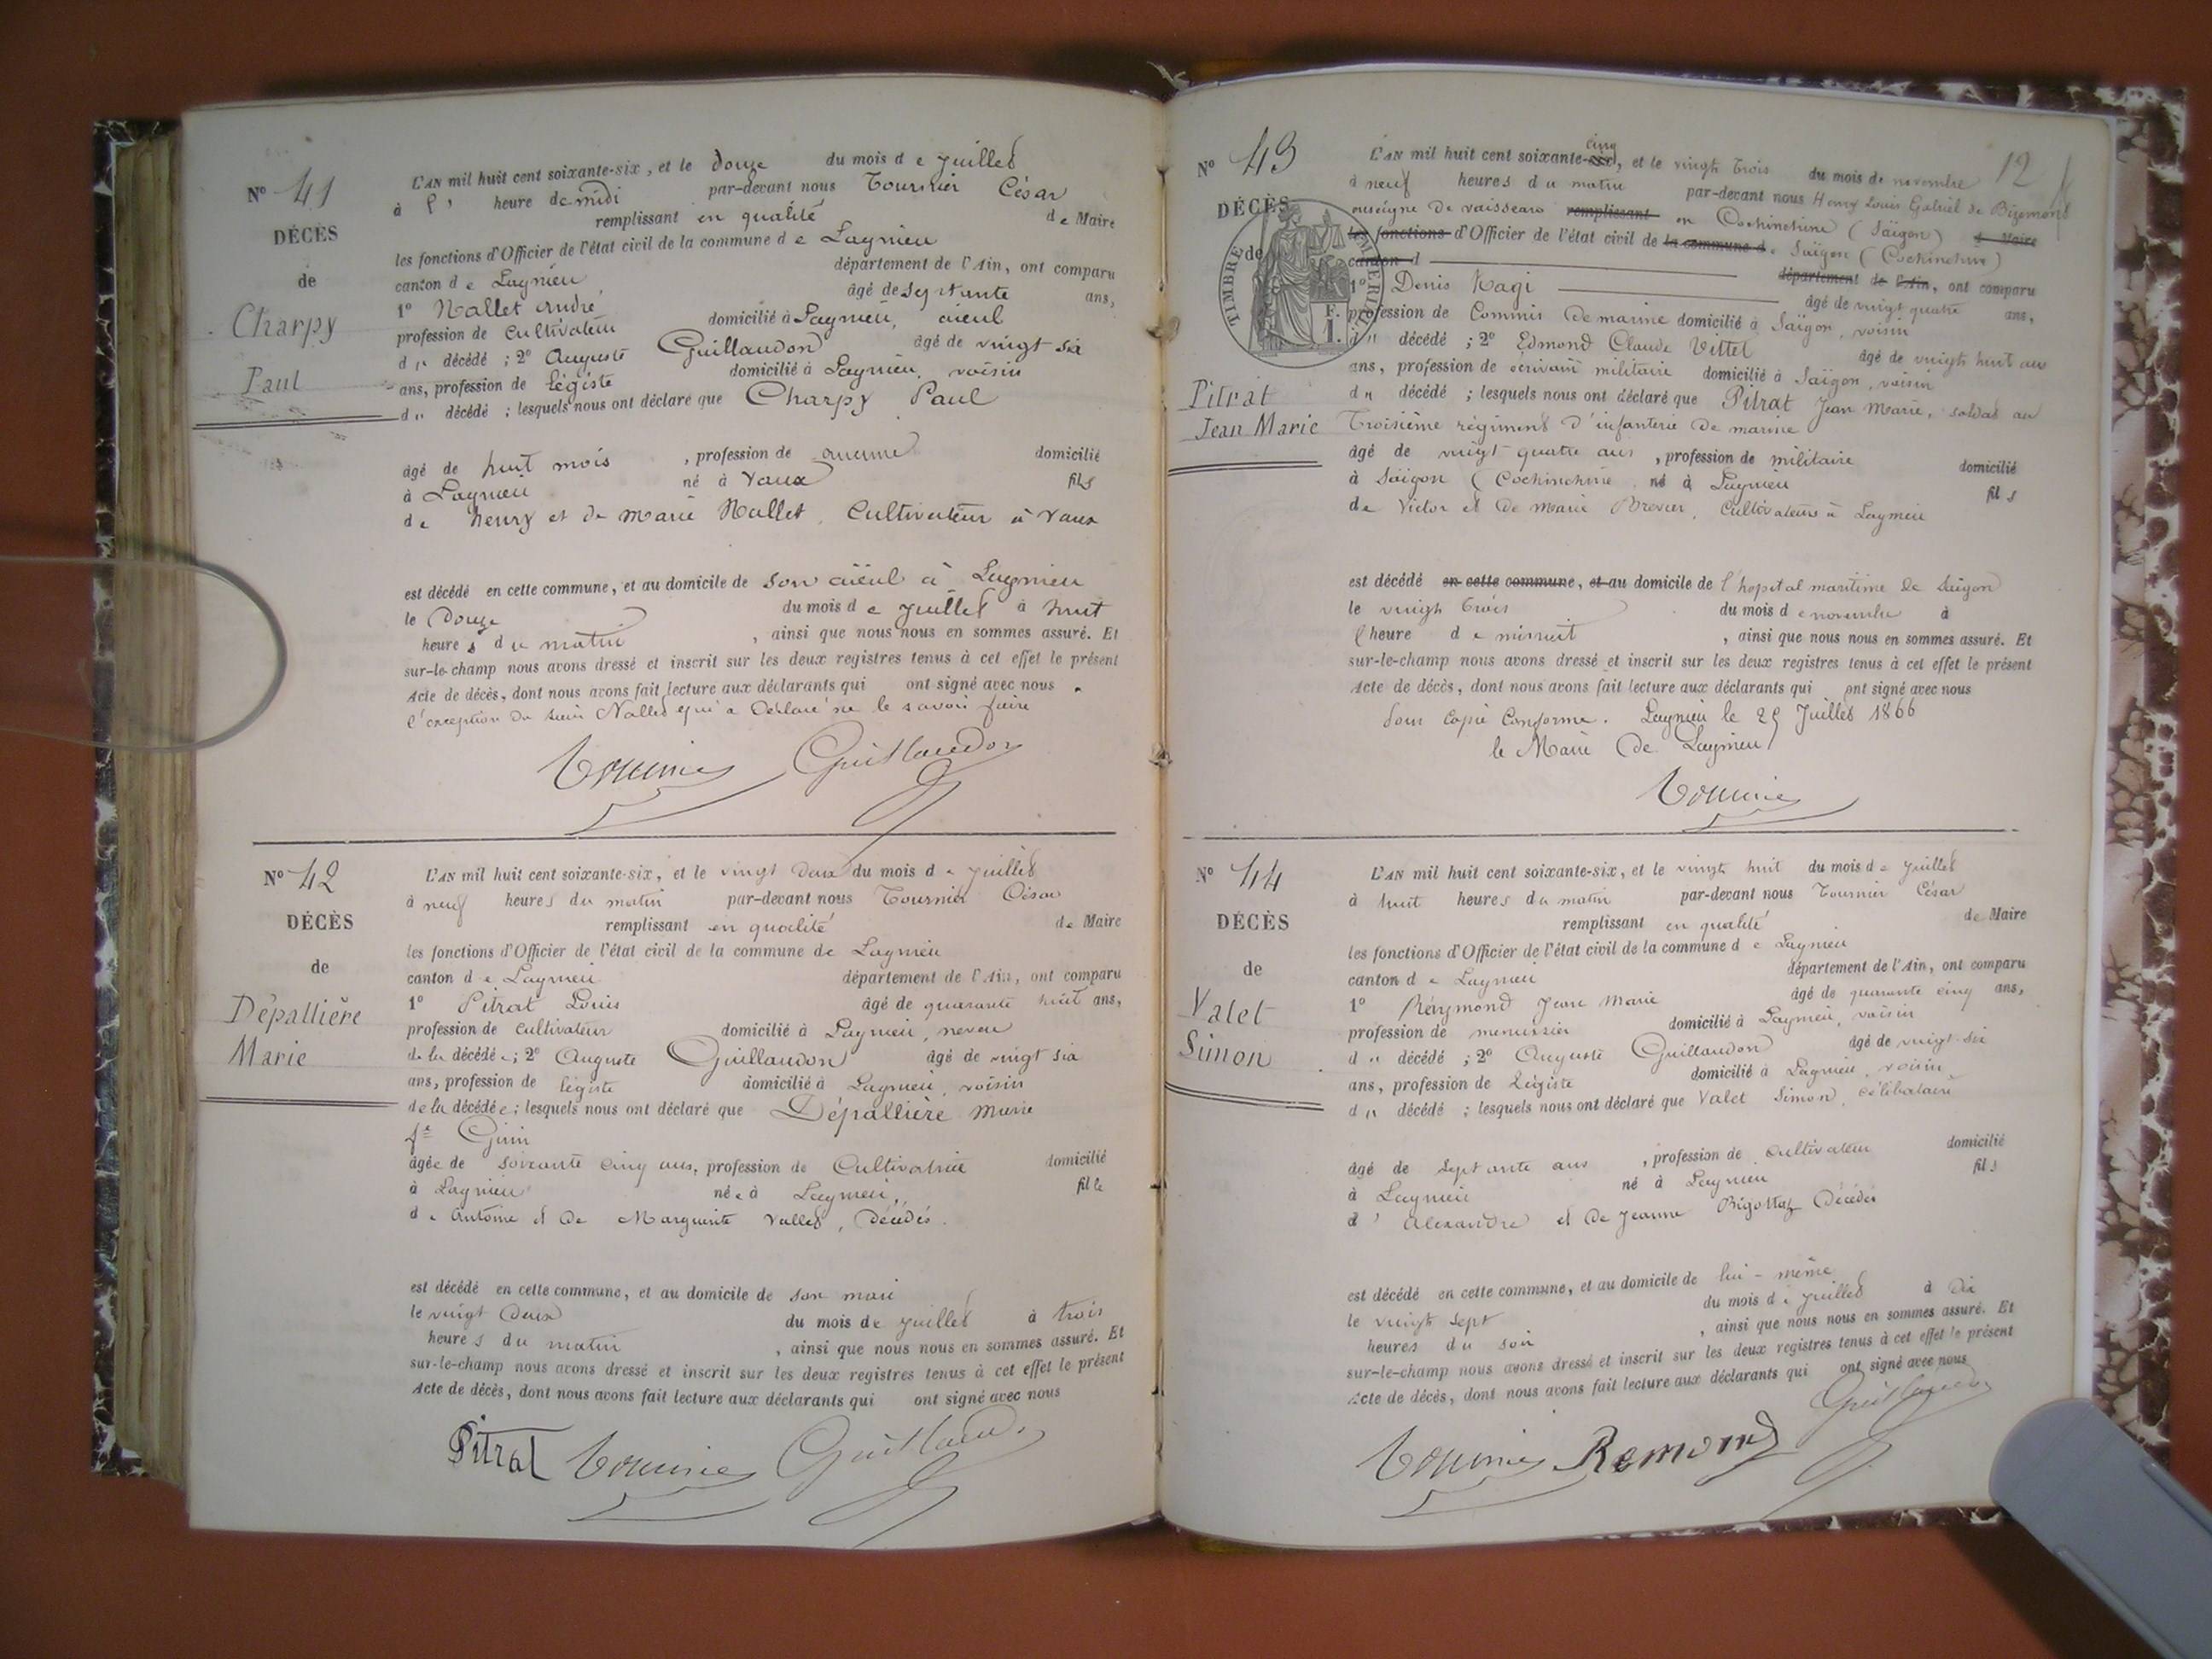 N° 41
DÉCÈS
de
Charpy
Paul
L'AN mil huit cent soixante-six, et le douze du mois de juillet
à l' heure de midi par-devant nous Tournier César
remplissant en qualité de Maire
les fonctions d'Officier de l'état civil de la commune de Lagnieu
canton de Lagnieu département de l'Ain, ont comparu
1° Nallet André âgé de septante ans,
profession de cultivateur domicilié à Lagnieu, aïeul
du décédé ; 2° Auguste Guillaudon âgé de vingt six
ans, profession de légiste domicilié à Lagnieu, voisin
du décédé ; lesquels nous ont déclaré que Charpy Paul
âgé de huit mois , profession de aucune domicilié
à Lagnieu né à Vaux fils
de henry et de Marie Nallet, Cultivateur à Vaux
est décédé en cette commune, et au domicile de son aïeul à Lagnieu
le Douze du mois de juillet à huit
heures du matin , ainsi que nous nous en sommes assuré. Et
sur-le-champ nous avons dressé et inscrit sur les deux registres tenus à cet effet le présent
Acte de décès, dont nous avons fait lecture aux déclarants qui ont signé avec nous .
l'exception du sieur Nallet qui a déclaré ne le savoir faire
Tournier Guillaudon
N° 42
DÉCÈS
de
Dépallière
Marie
L'AN mil huit cent soixante-six, et le vingt deux du mois de juillet
à neuf heures du matin par-devant nous Tournier César
remplissant en qualité de Maire
les fonctions d'Officier de l'état civil de la commune de Lagnieu
canton de Lagnieu département de l'Ain, ont comparu
1° Pitrat Louis âgé de quarante huit ans,
profession de cultivateur domicilié à Lagnieu, neveu
de la décédée ; 2° Auguste Guillaudon âgé de vingt six
ans, profession de légiste domicilié à Lagnieu, voisin
de la décédée ; lesquels nous ont déclaré que Dépallière Marie
fe Girin
âgée de soixante cinq ans, profession de Cultivatrice domicilié
à Lagnieu née à Lagnieu, fille
de Antoine et de Marguerite Vallet, décédés.
est décédé en cette commune, et au domicile de son mari
le vingt deux du mois de juillet à trois
heures du matin , ainsi que nous nous en sommes assuré. Et
sur-le-champ nous avons dressé et inscrit sur les deux registres tenus à cet effet le présent
Acte de décès, dont nous avons fait lecture aux déclarants qui ont signé avec nous
Pitrat Tournier Guillaudon
12
N° 43
DÉCÈS
de
TIMBRE IMPERIAL
1 F.
Pitrat
Jean Marie
L'AN mil huit cent soixante-six cinq, et le vingt trois du mois de novembre
à neuf heures du matin par-devant nous Henry Louis Gabriel de Bizemont
enseigne de vaisseau remplissant en Cochinchine (Saïgon) d Maire
les fonctions d'Officier de l'état civil de la commune de Saïgon (Cochinchine)
canton d département de l'Ain, ont comparu
1° Denis Kagi âgé de vingt quatre ans,
profession de Commis de marine domicilié à Saïgon, voisin
du décédé ; 2° Edmond Claude Vittel âgé de vingt huit ans
ans, profession de écrivain militaire domicilié à Saïgon, voisin
du décédé ; lesquels nous ont déclaré que Pitrat Jean Marie, soldat au
Troisième régiment d'infanterie de marine
âgé de vingt quatre ans , profession de militaire domicilié
à Saïgon (Cochinchine né à Lagnieu fils
de Victor et de Marie Brevier, Cultivateurs à Lagnieu
est décédé en cette commune, et au domicile de l'hopital maritime de Saigon
le vingt trois du mois de novembre à
l'heure de minuit , ainsi que nous nous en sommes assuré. Et
sur-le-champ nous avons dressé et inscrit sur les deux registres tenus à cet effet le présent
Acte de décès, dont nous avons fait lecture aux déclarants qui ont signé avec nous
Pour Copie Conforme. Lagnieu le 25 Juillet 1866
le Maire de Lagnieu
Tournier
N° 44
DÉCÈS
de
Valet
Simon
L'AN mil huit cent soixante-six, et le vingt huit du mois de juillet
à huit heures du matin par-devant nous Tournier César
remplissant en qualité de Maire
les fonctions d'Officier de l'état civil de la commune de Lagnieu
canton de Lagnieu département de l'Ain, ont comparu
1° Réymond Jean Marie âgé de quarante cinq ans,
profession de menuisier domicilié à Lagnieu, voisin
du décédé ; 2° Auguste Guillaudon âgé de vingt-six
ans, profession de Légiste domicilié à Lagnieu, voisin
du décédé ; lesquels nous ont déclaré que Valet Simon, célibataire
âgé de septante ans , profession de cultivateur domicilié
à Lagnieu né à Lagnieu fils
d' Alexandre et de Jeanne Bigottaz Décédés
est décédé en cette commune, et au domicile de lui-même
le vingt sept du mois de juillet à dix
heures du soir , ainsi que nous nous en sommes assuré. Et
sur-le-champ nous avons dressé et inscrit sur les deux registres tenus à cet effet le présent
Acte de décès, dont nous avons fait lecture aux déclarants qui ont signé avec nous
Tournier Remond Guillaudon